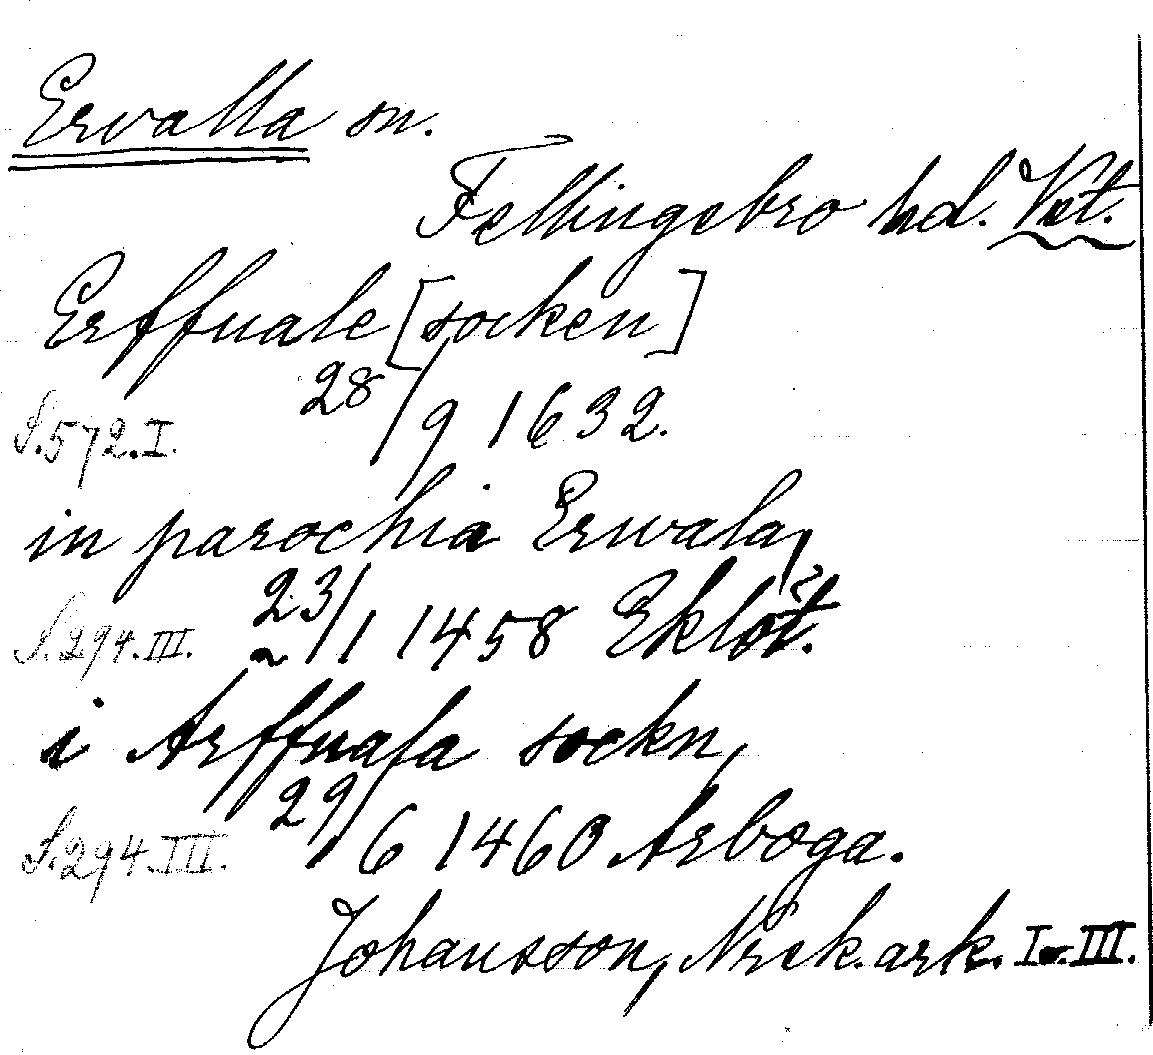 Ervalla sn.
Fellingsbro hd. Vst.
Erffuale [socken]
28/9 1632.
S. 572. I.
in parochia Erwala,
S. 294. III. 23/1 1458 Eklöt.
i Arffuala sockn,
S. 294. III. 29/6 1460 Arboga.
Johansson, Norek. ark. I o. III.